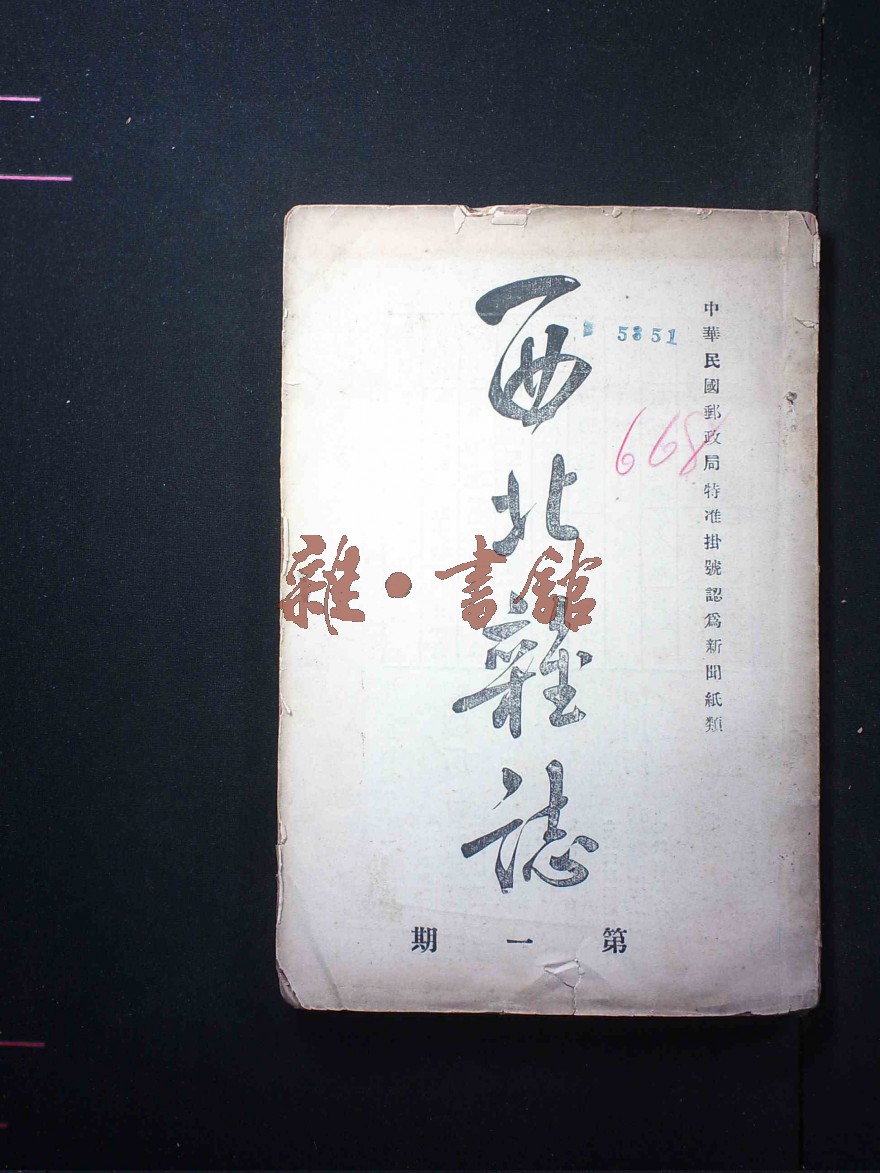 中華民國郵政局特准掛號認爲新聞紙類
5351
668
西北雜誌
雜·書館
第一期